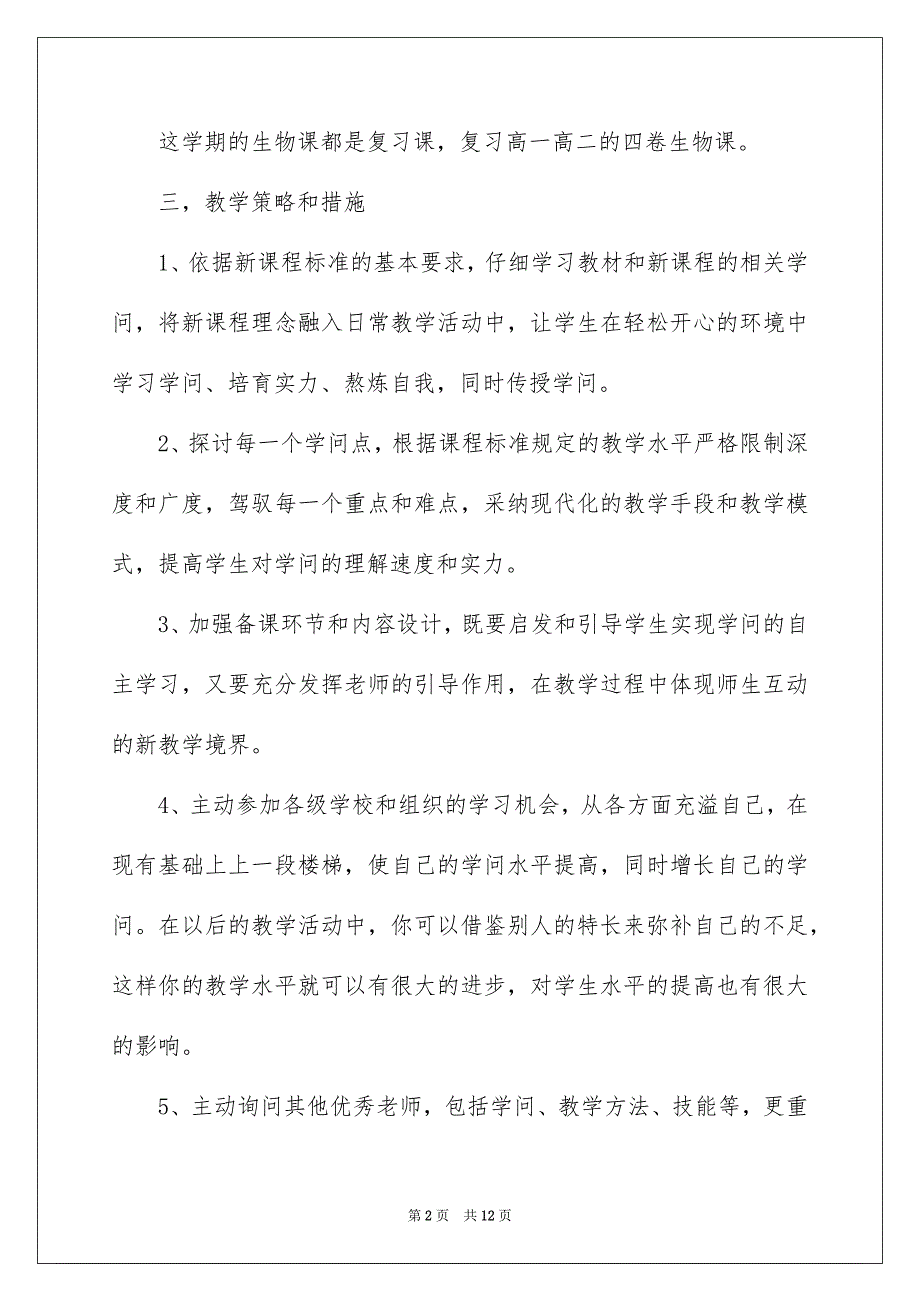 这学期的生物课都是复习课，复习高一高二的四卷生物课。
三，教学策略和措施
1、依据新课程标准的基本要求，仔细学习教材和新课程的相关学
问，将新课程理念融入日常教学活动中，让学生在轻松开心的环境中
学习学问、培育实力、熬炼自我，同时传授学问。
2、探讨每一个学问点，根据课程标准规定的教学水平严格限制深
度和广度，驾驭每一个重点和难点，采纳现代化的教学手段和教学模
式，提高学生对学问的理解速度和实力。
3、加强备课环节和内容设计，既要启发和引导学生实现学问的自
主学习，又要充分发挥老师的引导作用，在教学过程中体现师生互动
的新教学境界。
4、主动参加各级学校和组织的学习机会，从各方面充溢自己，在
现有基础上上一段楼梯，使自己的学问水平提高，同时增长自己的学
问。在以后的教学活动中，你可以借鉴别人的特长来弥补自己的不足，
这样你的教学水平就可以有很大的进步，对学生水平的提高也有很大
的影响。
5、主动询问其他优秀老师，包括学问、教学方法、技能等，更重
第 2 页 共 12 页